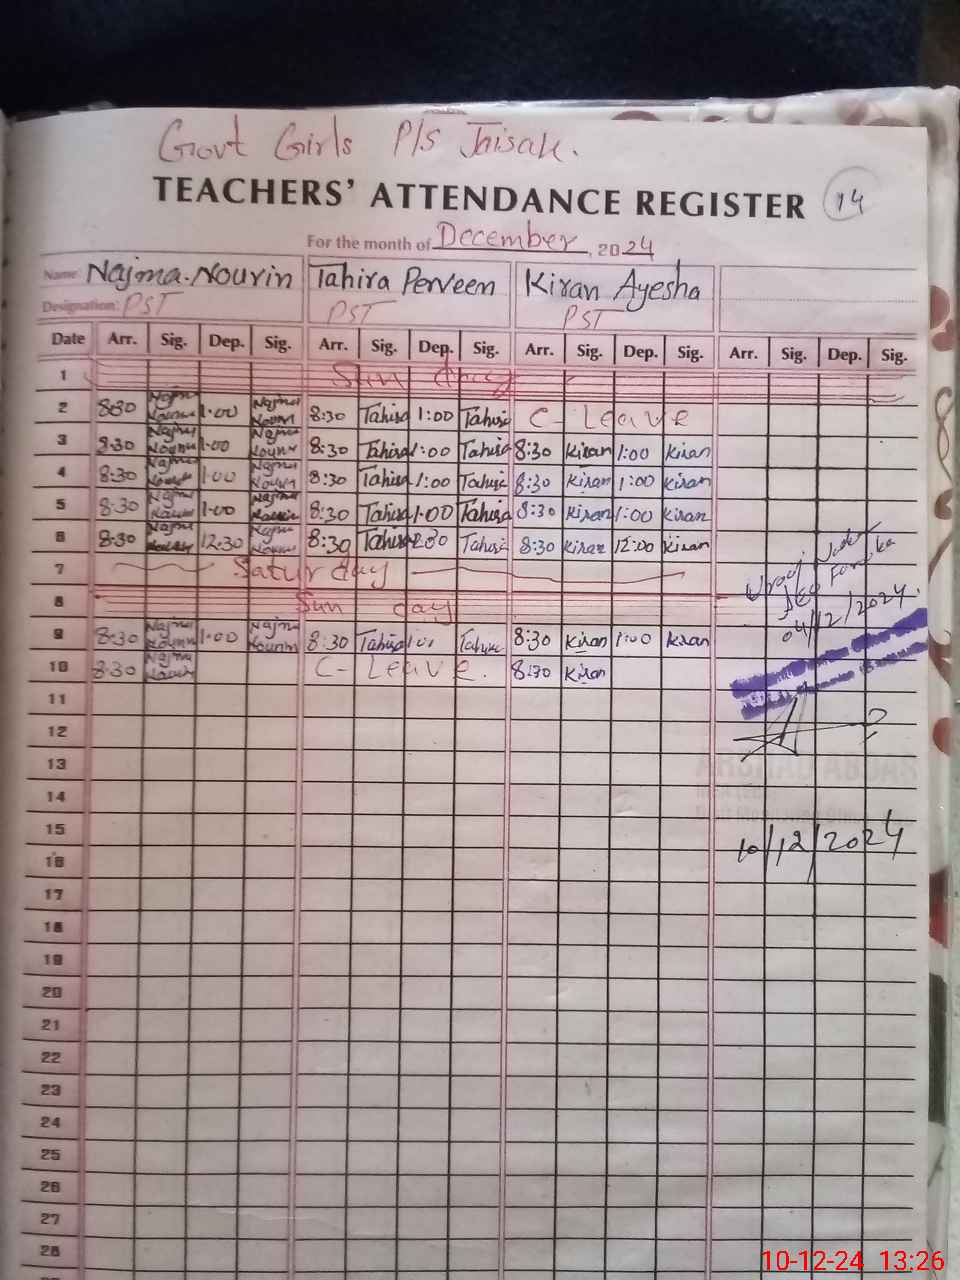 Govt Girls P/S Jaisak.
TEACHERS' ATTENDANCE REGISTER 14
For the month of December, 2024
Name: Najma. Nourin Tahira Perveen Kiran Ayesha
Designation: PST PST PST
Date Arr. Sig. Dep. Sig. Arr. Sig. Dep. Sig. Arr. Sig. Dep. Sig. Arr. Sig. Dep. Sig.
1 Sun day
2 8:30 Najma Nourin 1:00 Najma Nourin 8:30 Tahira 1:00 Tahira C- Leave
3 8:30 Najma Nourin 1:00 Najma Nourin 8:30 Tahira 1:00 Tahira 8:30 Kiran 1:00 Kiran
4 8:30 Najma Nourin 1:00 Najma Nourin 8:30 Tahira 1:00 Tahira 8:30 Kiran 1:00 Kiran
5 8:30 Najma Nourin 1:00 Najma Nourin 8:30 Tahira 1:00 Tahira 8:30 Kiran 1:00 Kiran
6 8:30 Najma Nourin 12:30 Najma Nourin 8:30 Tahira Tahira 8:30 Kiran 12:00 Kiran
7 Saturday
8 Sun day
04/12/2024
9 8:30 Najma Nourin 1:00 Najma Nourin 8:30 Tahira Tahira 8:30 Kiran 1:00 Kiran
10 8:30 Najma Nourin C- Leave. 8:30 Kiran
11
12
13
ARSHAD ABBAS
14
15
10/12/2024
16
17
18
19
20
21
22
23
24
25
26
27
28
10-12-24 13:26